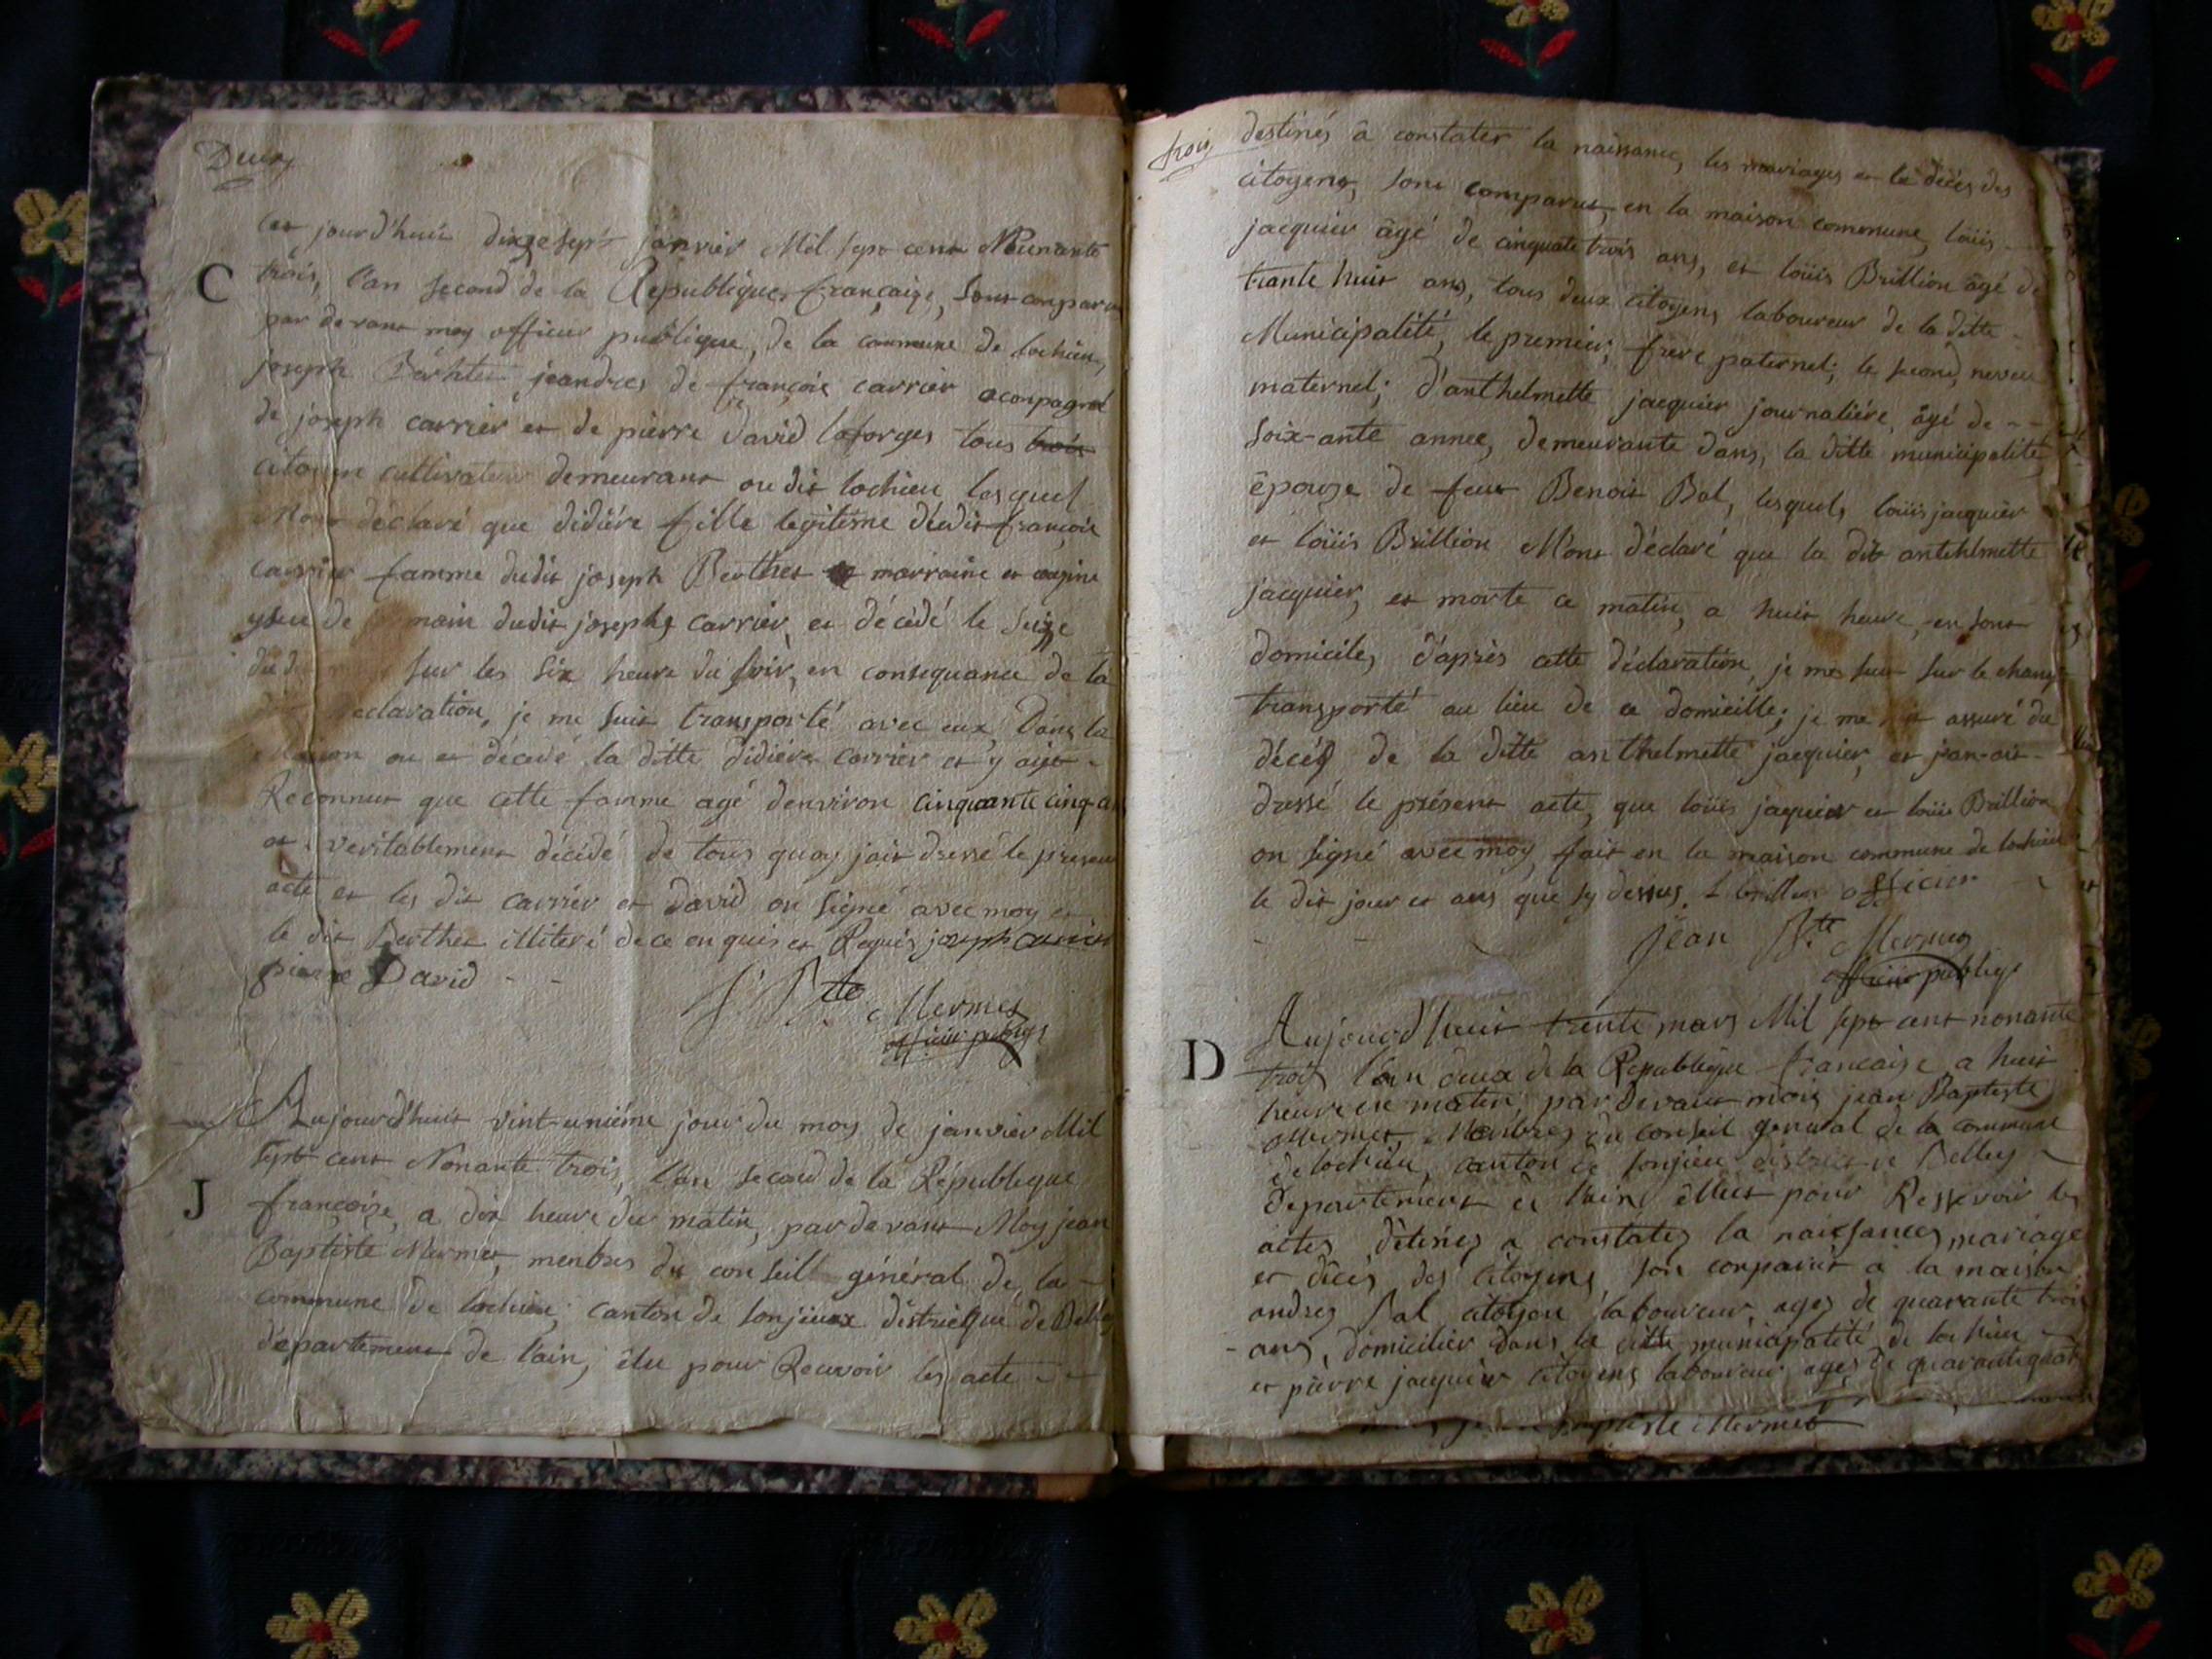 Deux
Cet jourd'huit dixesept janvier Mil sept cent Nonante
C
trois, l'an second de la Republique françaige, sont comparu
par devant moy officier publique, de la commune de lochieu,
joseph jeandres de françois carrier aconpagné
de joseph carrier et de pierre david laforges tous trois
citoyen cultivateur demeurant ou dit lochieu lesquel
M'ont déclaré que didiére fille legitisme dédit françois
carrier famme dudit joseph Berthet marraine et cogine
de main dudit joseph carrier, et décédé le seize
du sur les six heure du soir, en consequance de la
declaration, je me suit transporté avec eux, Dans la
Maison ou et décédé la ditte didiére carrier et y aiyt -
Reconnut que cette famme agé denviron cinquante cinq an
et veritablement décédé de tous quoy jait dressé le present
acte et les dit carrier et david on signé avec moy et
le dit Berthet illiteré de ce enquis et Requis joseph carrier
pierre David - -
J Bte Mermet
officier publiqs
Aujourd'huit vint-uniéme jour du moy de janvier Mil
sept cent Nonante trois, l'an second de la République
J
françoise, a dix heure du matin, pardevant Moy jean
Baptiste Mermet, menbres du conseill général de la -
commune de lochieu; canton de sonjieux districque de Belley
département de l'ain, élu pour Recevoir les acte - -
trois
destinés â constater la naissance, les mariages et le décés des
citoyens, sont comparus, en la maison commune, loüis -
jacquier âgé de cinquate trois ans, et loüis Brillion âgé de
trante huit ans, tous deux citoyens laboureur de la ditte -
Municipalité, le premier; frere paternel; le second, neveu
maternel; d'anthelmette jacquier journaliére, âgé de - -
soix-ante annee, demeurante dans, la ditte municipalité
épouze de feut Benoit Bal, lesquels loüis jacquier
et loüis Brillion M'ont déclaré que la dit antehlmette
jacquier, et morte ce matin, a huit heure, en sont
domicile, d'après cette déclaration, je me suit sur le champ
transporté au lieu de ce domicille; je me suit assuré du
décés de la ditte anthelmette jacquier, et j'an-ait -
dressé le présent acte, que loüis jaquier et loüis Brillion
on signé avec moy, fait en la maison commune de lochieu
le dit jour et ans que sy dessus. L brillion officier
Jean Bte Mermet
officier publiqs
Aujourd huit trente mars Mil sept cent nonante
D
trois l'an deux de la Republique francaise a huit
heure de matin, par devant mois jean Baptiste
Mermet, Menbres du conseil general de la commune
de lochieu, canton de sonjieu district de Belley
departement de l'ain ellut pour Ressevoir les
actes détinés a constater la naissances, mariage
et décés des citoyens son conparut a la maison
andres Bal citoyen laboureur, ages de quarante trois
- ans, domicilier dans la ditte municipalité de lochieu
et pierre jacquier citoyens laboureur ages de quarante quatre
Baptiste Mermet